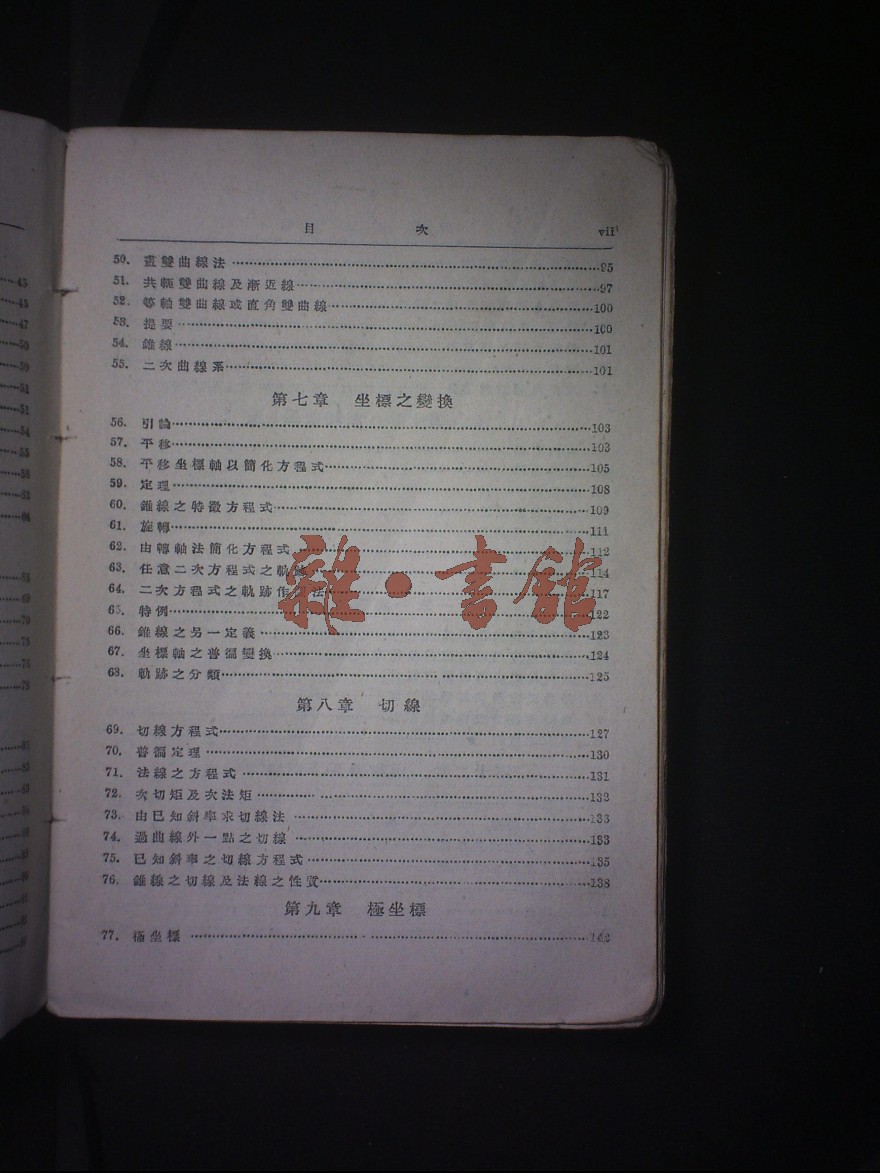 目 次 vii
50. 畫雙曲線法 95
51. 共軛雙曲線及漸近線 97
52. 等軸雙曲線或直角雙曲線 100
53. 提要 100
54. 錐線 101
55. 二次曲線系 101
第七章 坐標之變換
56. 引論 103
57. 平移 103
58. 平移坐標軸以簡化方程式 105
59. 定理 108
60. 錐線之特徵方程式 109
61. 旋轉 111
62. 由轉軸法簡化方程式 112
63. 任意二次方程式之軌跡 114
64. 二次方程式之軌跡作法 117
65. 特例 122
66. 錐線之另一定義 123
67. 坐標軸之普遍變換 124
68. 軌跡之分類 125
第八章 切線
69. 切線方程式 127
70. 普遍定理 130
71. 法線之方程式 131
72. 次切矩及次法矩 132
73. 由已知斜率求切線法 133
74. 過曲線外一點之切線 133
75. 已知斜率之切線方程式 135
76. 錐線之切線及法線之性質 138
第九章 極坐標
77. 極坐標 142
雜·書館